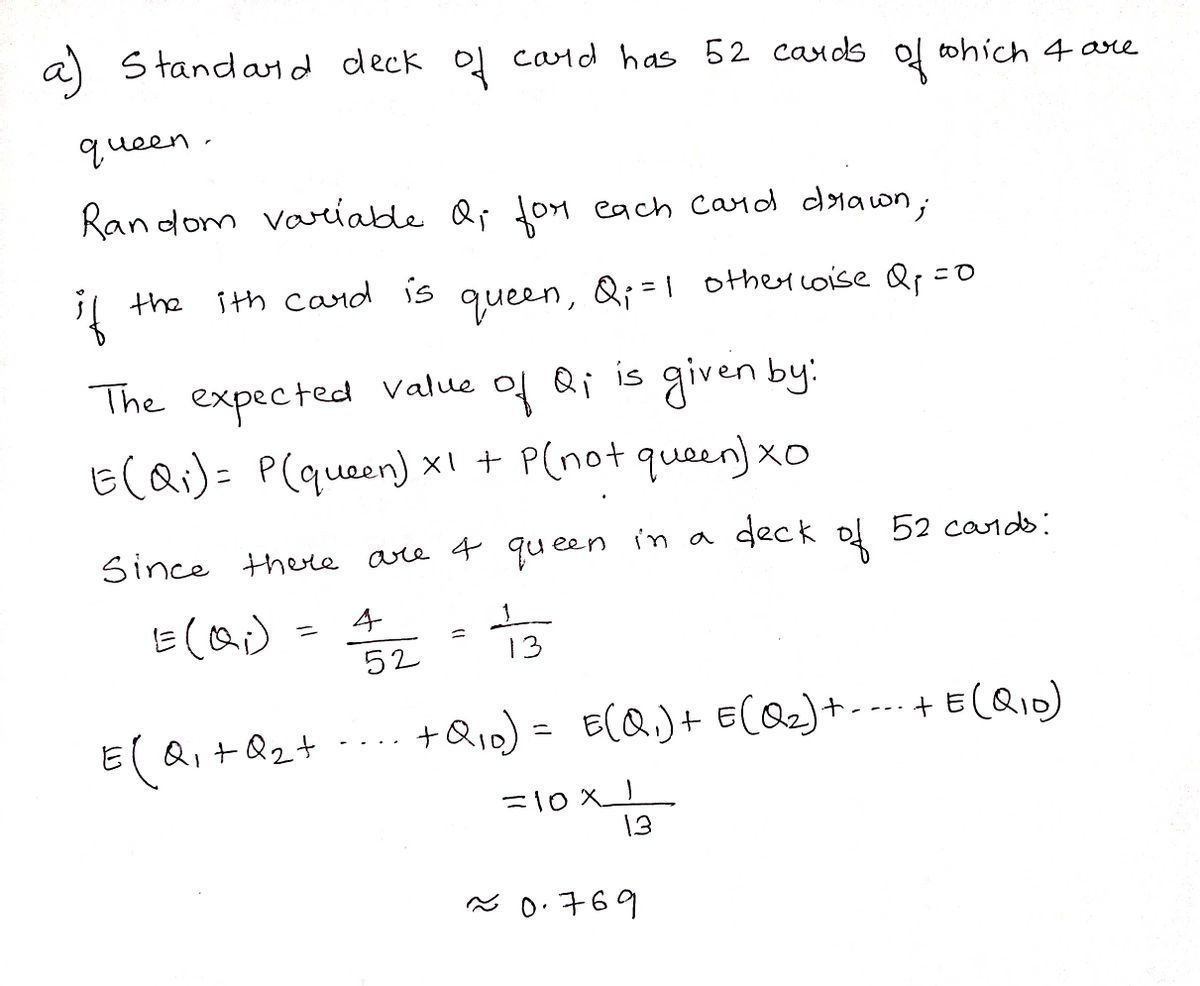 a) Standard deck of card has 52 cards of which 4 are
queen.
Random variable Qi for each card drawn;
if the ith card is queen, Qi=1 otherwise Qi=0
The expected value of Qi is given by:
E(Qi)= P(queen)×1 + P(not queen)×0
Since there are 4 queen in a deck of 52 cards:
E(Qi) = 4/52 = 1/13
E(Q1+Q2+ .... +Q10) = E(Q1)+ E(Q2)+----+ E(Q10)
=10 × 1/13
≈ 0.769